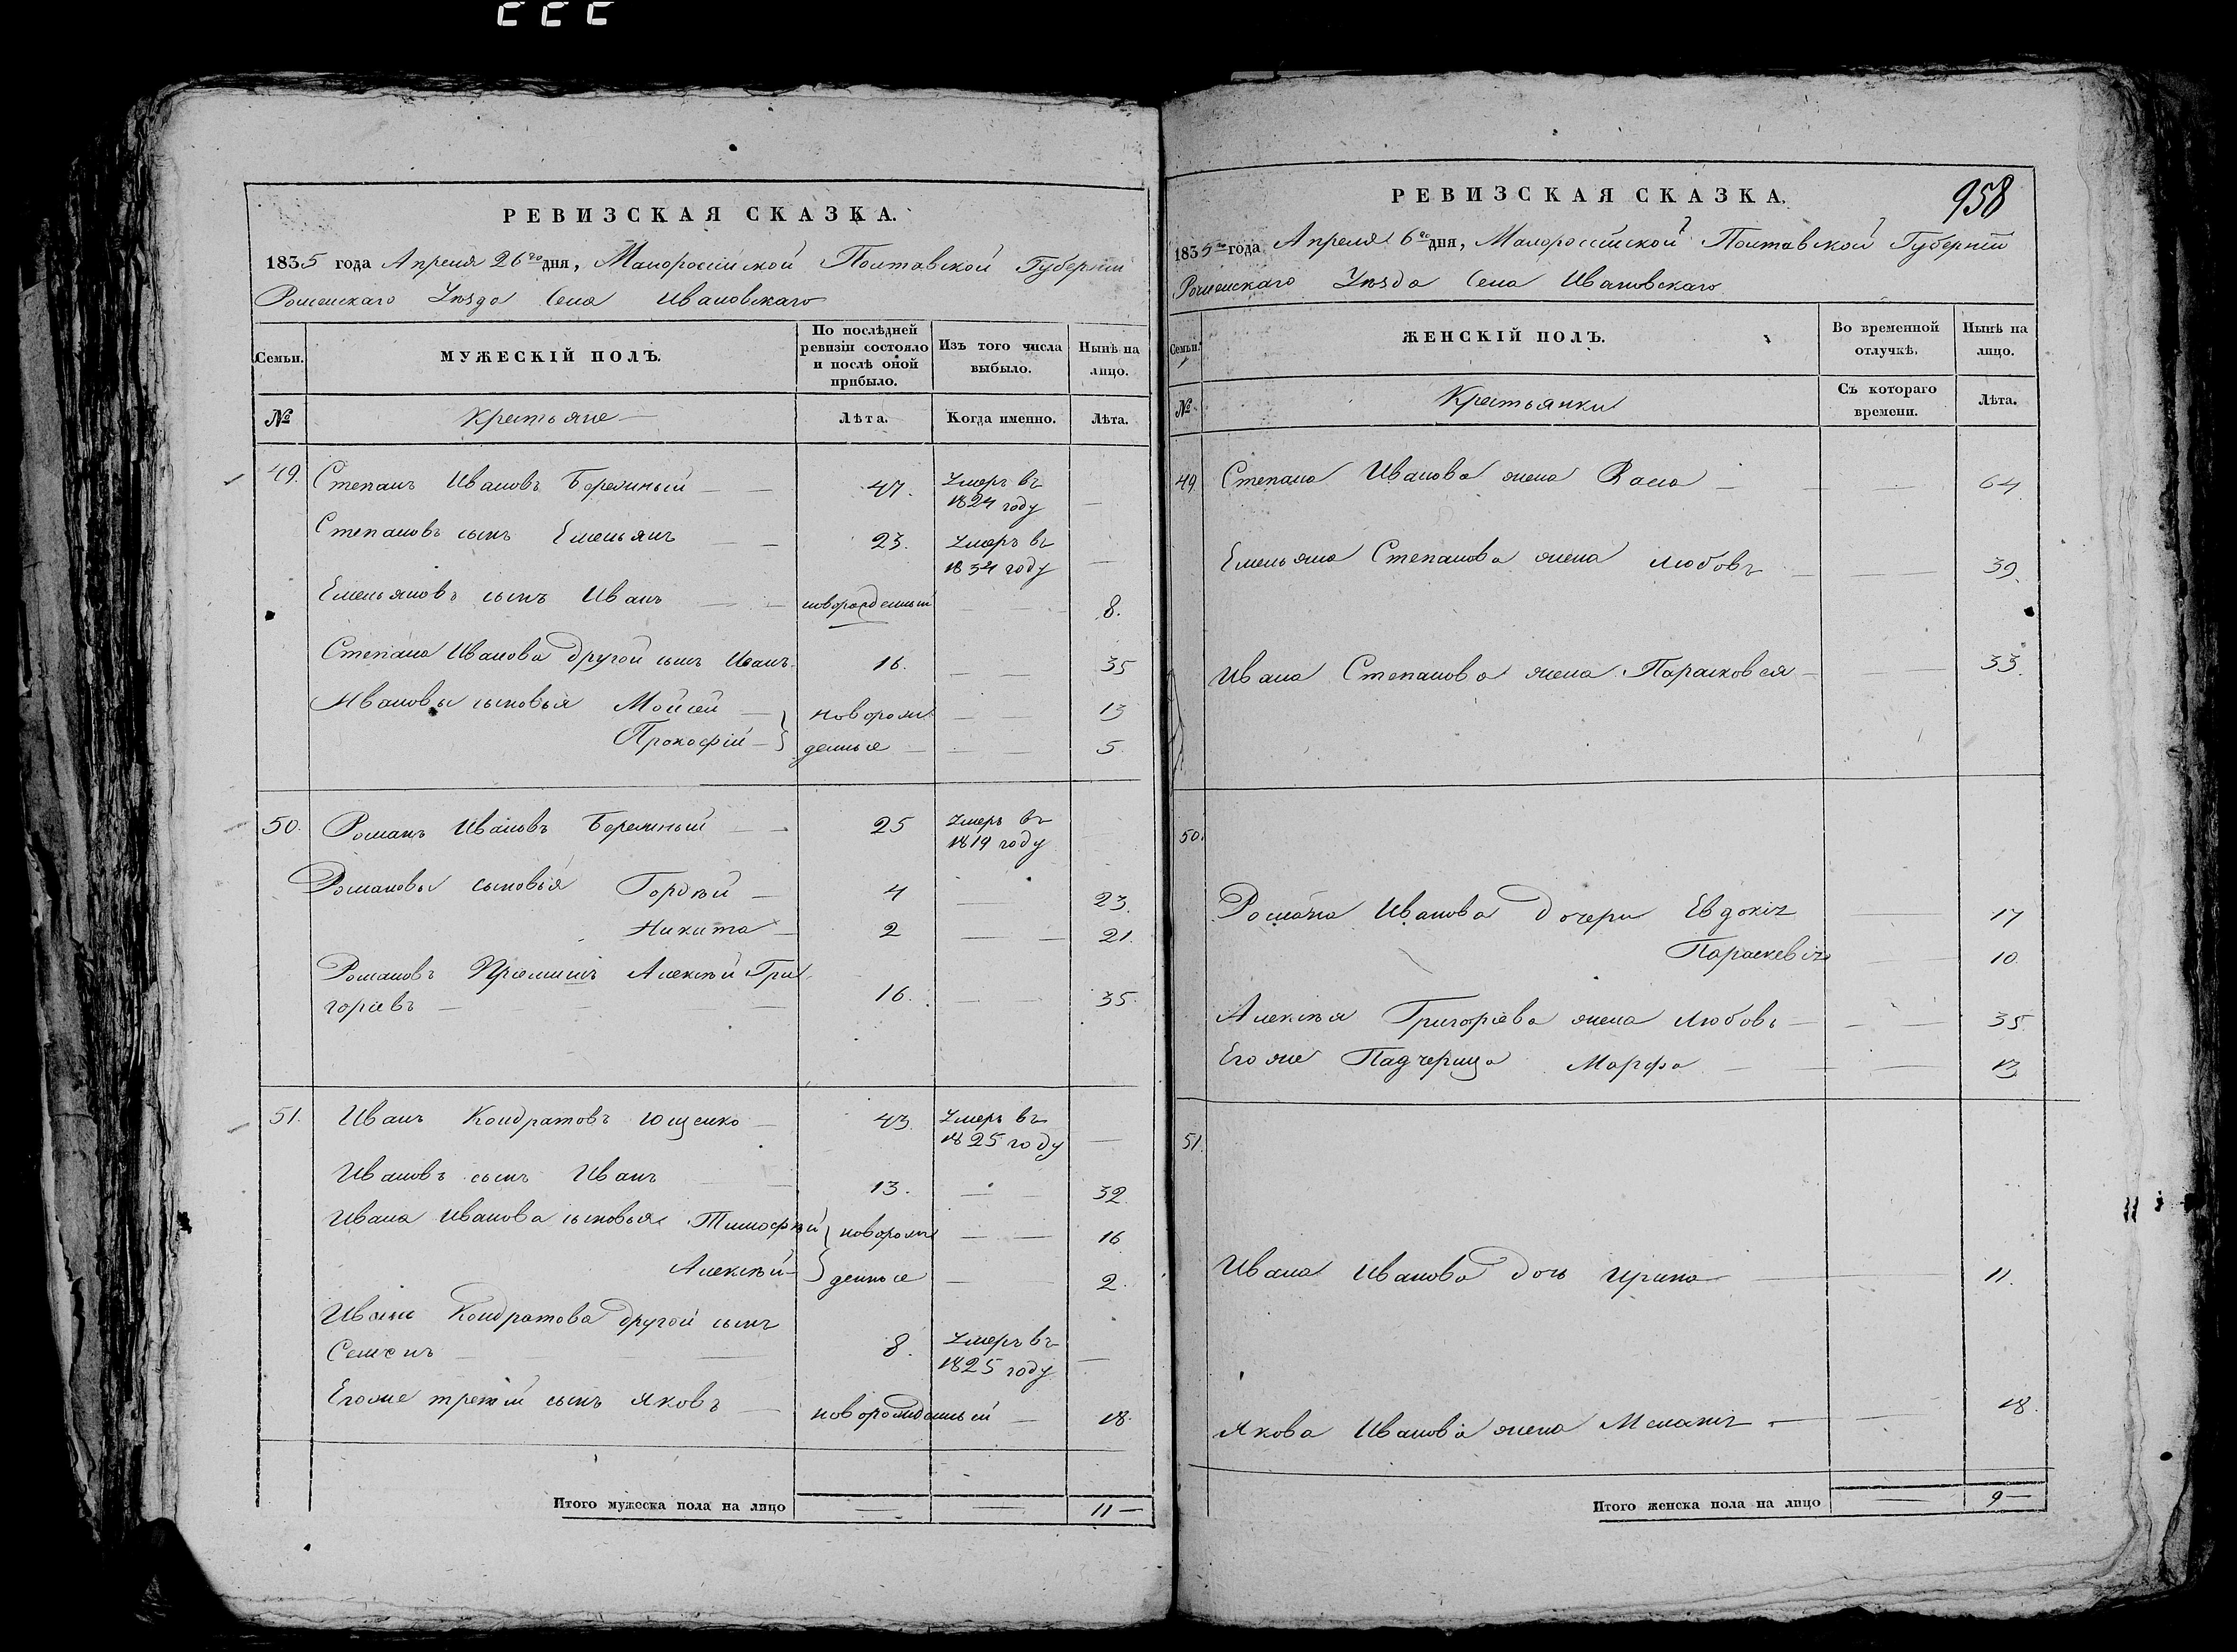 РЕВИЗСКАЯ СКАЗКА.
1835 года Апреля 26го дня, Малороссійской Полтавской Губерніи
Роменскаго Уѣзда Села Ивановскаго
Семьи.
МУЖЕСКІЙ ПОЛЪ.
По послѣдней ревизіи состояло и послѣ оной прибыло.
Изъ того числа выбыло.
Нынѣ на лицо.
№
Крестьяне
Лѣта.
Когда именно.
Лѣта.
49. Степанъ Ивановъ Бережный 47. Умеръ въ 1824 году
Степановъ сынъ Емельянъ 23. Умеръ въ 1834 году
Емельяновъ сынъ Иванъ новорожденный 8.
Степана Иванова другой сынъ Иванъ 16. 35
Ивановы сыновья Мойсей новорож 13
Прокофій денные 5.
50. Романъ Ивановъ Бережный 25 Умеръ въ 1819 году
Романовы сыновья Гордѣй 4 23.
Никита 2 21.
Романовъ Алексѣй Гри
горіевъ 16. 35.
51. Иванъ Кондратовъ Ющенко 43. Умеръ въ 1825 году
Ивановъ сынъ Иванъ 13. 32.
Ивана Иванова сыновья Тимофѣй новорож 16
Алексѣй денные 2.
Ивана Кондратова другой сынъ
Семенъ 8. Умеръ въ 1825 году
Егоже третій сынъ Яковъ новорожденный 18.
Итого мужеска пола на лицо 11
РЕВИЗСКАЯ СКАЗКА.
958
1835го года Апреля 6го дня, Малороссійской Полтавской Губерніи
Роменскаго Уѣзда Села Ивановскаго
Семьи.
ЖЕНСКІЙ ПОЛЪ.
Во временной отлучкѣ.
Нынѣ на лицо.
№
Крестьянки
Съ котораго времени.
Лѣта.
49 Степана Иванова жена 64
Емельяна Степанова жена Любовъ 39.
Ивана Степанова жена Парасковея 33.
50.
Романа Иванова дочери Евдокія 17
Параскевія 10.
Алексѣя Григоріева жена Любовь 35.
Егоже Падчерица Марфа 13
51.
Ивана Иванова дочь Ирина 11.
Якова Иванова жена 18.
Итого женска пола на лицо 9